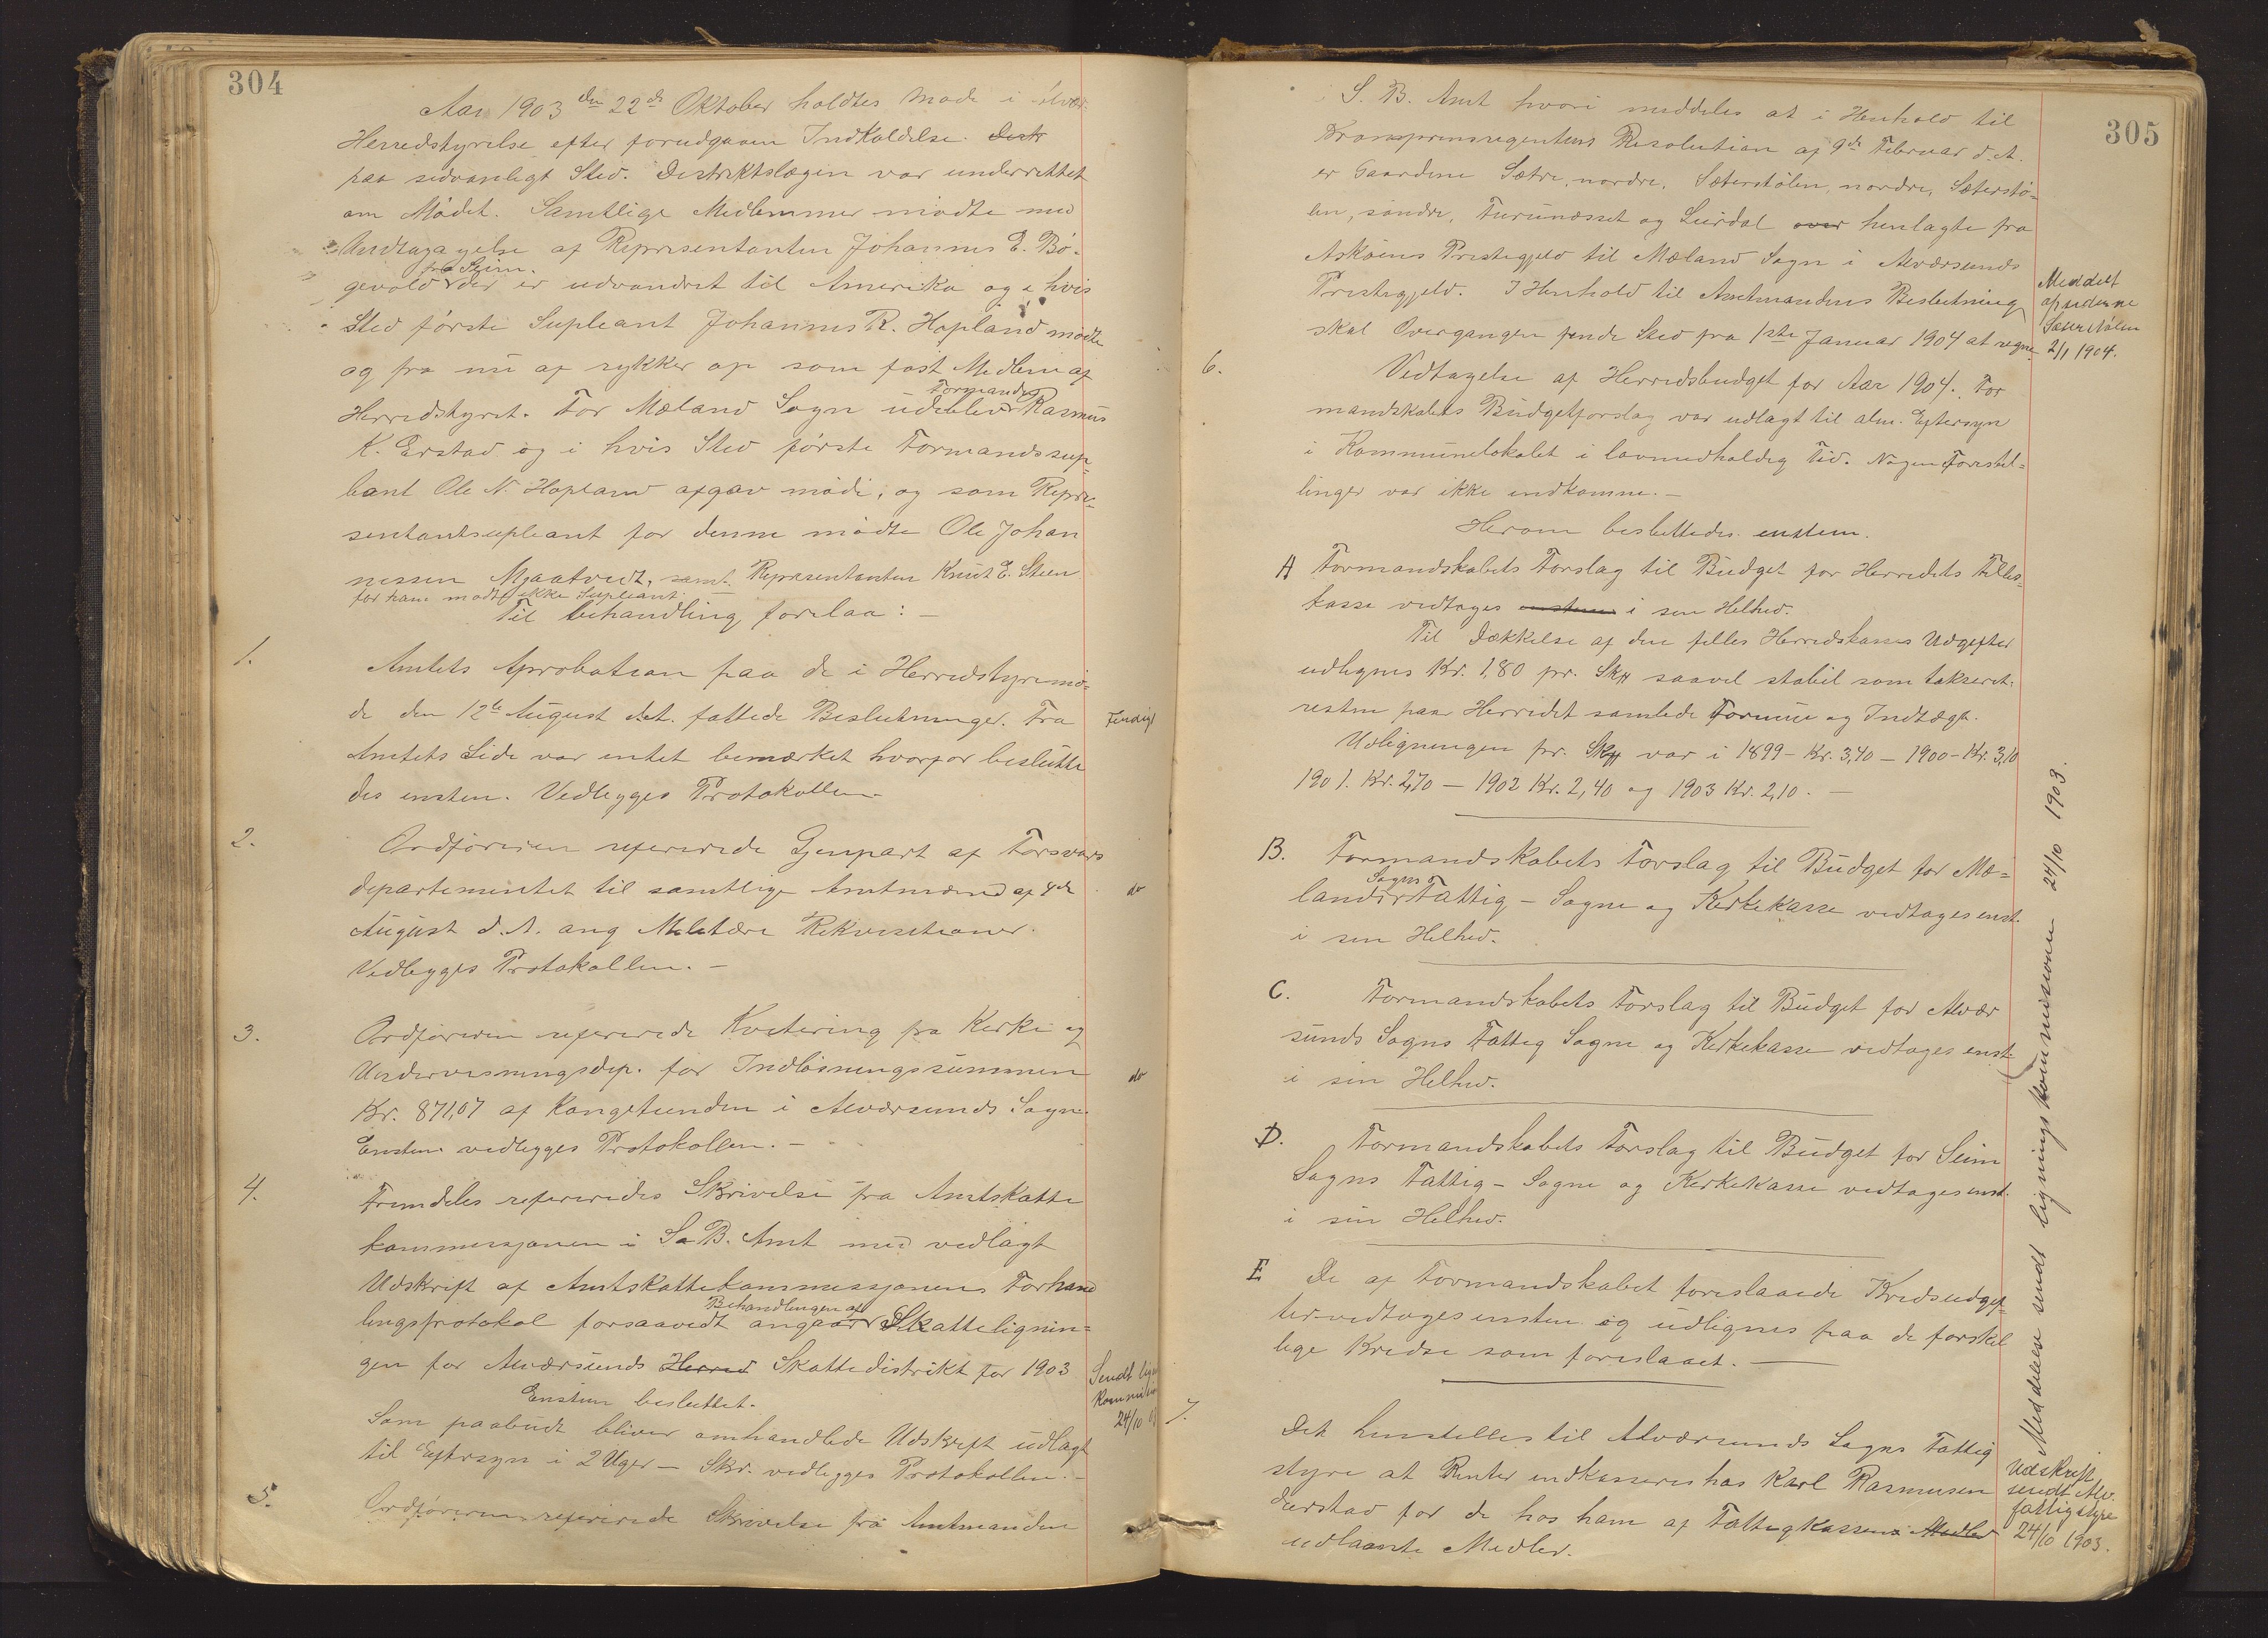 304
Aar 1903 den 22de Oktober holdtes Møde i Alvær
Herredstyrelse efter forudgaaen Indkaldelse. Distr
paa sedvanligt Sted. Distriktslægen var underrettet
om Mødet. Samtlige Medlemmer mødte med
Undtagagelse af Representanten Johannes E. Bø-
fra Seim.
gevold der er udvandret til Amerika og i hvis
Sted første Supleant Johannes R. Hopland mødte
og fra nu af rykker op som fast Medlem af
Formand
Herredstyret. For Mæland Sogn udeblev Rasmus
K. Erstad og i hvis Sted første Formandssup
leant Ole N. Hopland afgav møde, og som Repre-
sentantsupleant for denne mødte Ole Johan
nessen Mjaatvedt, samt Representanten Knut E. Steen
for ham mødte ikke Supleant. —
Til behandling forelaa: —
1.
Amtets Aprobation paa de i Herredstyremø-
de den 12te August d.A. fattede Beslutninger. Fra
Færdigt
Amtets Side var intet bemærket hvorfor beslutte
des enstem. Vedlegges Protokollen.
2.
Ordføreren refererede Gjenpart af Forsvars
departementet til samtlige Amtmænd af 4de
do
August d.A. ang Miletære Rekvisitioner.
Vedlegges Protokollen. —
3.
Ordføreren refererede Kvitering fra Kirke og
Undervisningsdep. for Indløsningssummen
do
Kr. 871,07 af Kongetienden i Alværsunds Sogn.
Enstem. vedlegges Protokollen. —
4.
Fremdeles refereredes Skrivelse fra Amtskatte
kommissjonen i S. B. Amt med vedlagt
Udskrift af Amtskattekommissjonens Forhand
Behandlingen af
lingsprotokol forsaavidt angaar Skattelignin=
gen for Alværsunds Herred Skattedistrikt for 1903
Sendt lign
kommisin
24/10 03
Enstem besluttet.
Som paabudt bliver omhandlede Udskrift udlagt
til Eftersyn i 2 Uger — Skr. vedlegges Protokollen. —
5.
Ordføreren refererede Skrivelse fra Amtmanden
305
S. B. Amt hvori meddeles at i Henhold til
Kronprinsregentens Resolution af 9de Februar d.A.
er Gaardene Sætre, nordre, Sæterstølen, nordre, Sæterstø-
len, søndre, Furunæsset og Leirdal over henlagte fra
Askøens Prestegjeld til Mæland Sogn i Alværsunds
Prestegjeld. I Henhold til Amtmandens Beslutning
skal Overgangen finde Sted fra 1ste Januar 1904 at regne
Meddelt
opsidderne
Sæterstølen
2/1 1904.
6.
Vedtagelse af Herredsbudget for Aar 1904. For
mandskabets Budgetforslag var udlagt til alm. Eftersyn
i Kommunelokalet i lovmedholdig Tid. Nogen Forestil=
linger var ikke indkomne. —
Herom besluttedes enstem.
A Formandskabets Forslag til Budget for Herredets Felles-
kasse vedtages enstem i sin Helhed.
Til Dækkelse af den felles Herredskasses Udgifter
udlignes Kr. 1,80 pr. Skℳ saavel stabil som takseret.
resten paa Herredet samlede Formue og Indtægt.
Udligningen pr. Skℳ var i 1899 - Kr. 3,40 — 1900 - Kr. 3,10
1901. Kr. 2,70 — 1902 Kr. 2,40 og 1903 Kr. 2,10. —
B. Formandskabets Forslag til Budget for Mæ=
Sogns
lands Fattig - Sogne og Kirkekasse vedtages enst.
i sin Helhed.
C. Formandskabets Forslag til Budget for Alvær
sunds Sogns Fattig Sogne og Kirkekasse vedtages enst.
i sin Helhed.
D. Formandskabets Forslag til Budget for Seim
Sogns Fattig - Sogne og Kirkekasse vedtages enst.
i sin Helhed.
E De af Formandskabet foreslaaede Kredsudgif=
ter vedtages enstem og udlignes paa de forskel
lige Kredse som foreslaaet. —
Meddelelse sendt ligningskommisionen 24/10 1903.
7.
Det henstilles til Alværsunds Sogns Fattig
styre at Renter indkasseres hos Karl Rasmusen
Eierstad for de hos ham af Fattigkassens Medler
udlaante Midler.
Udskrift
sendt Alv.
fattigstyre
24/10 1903.